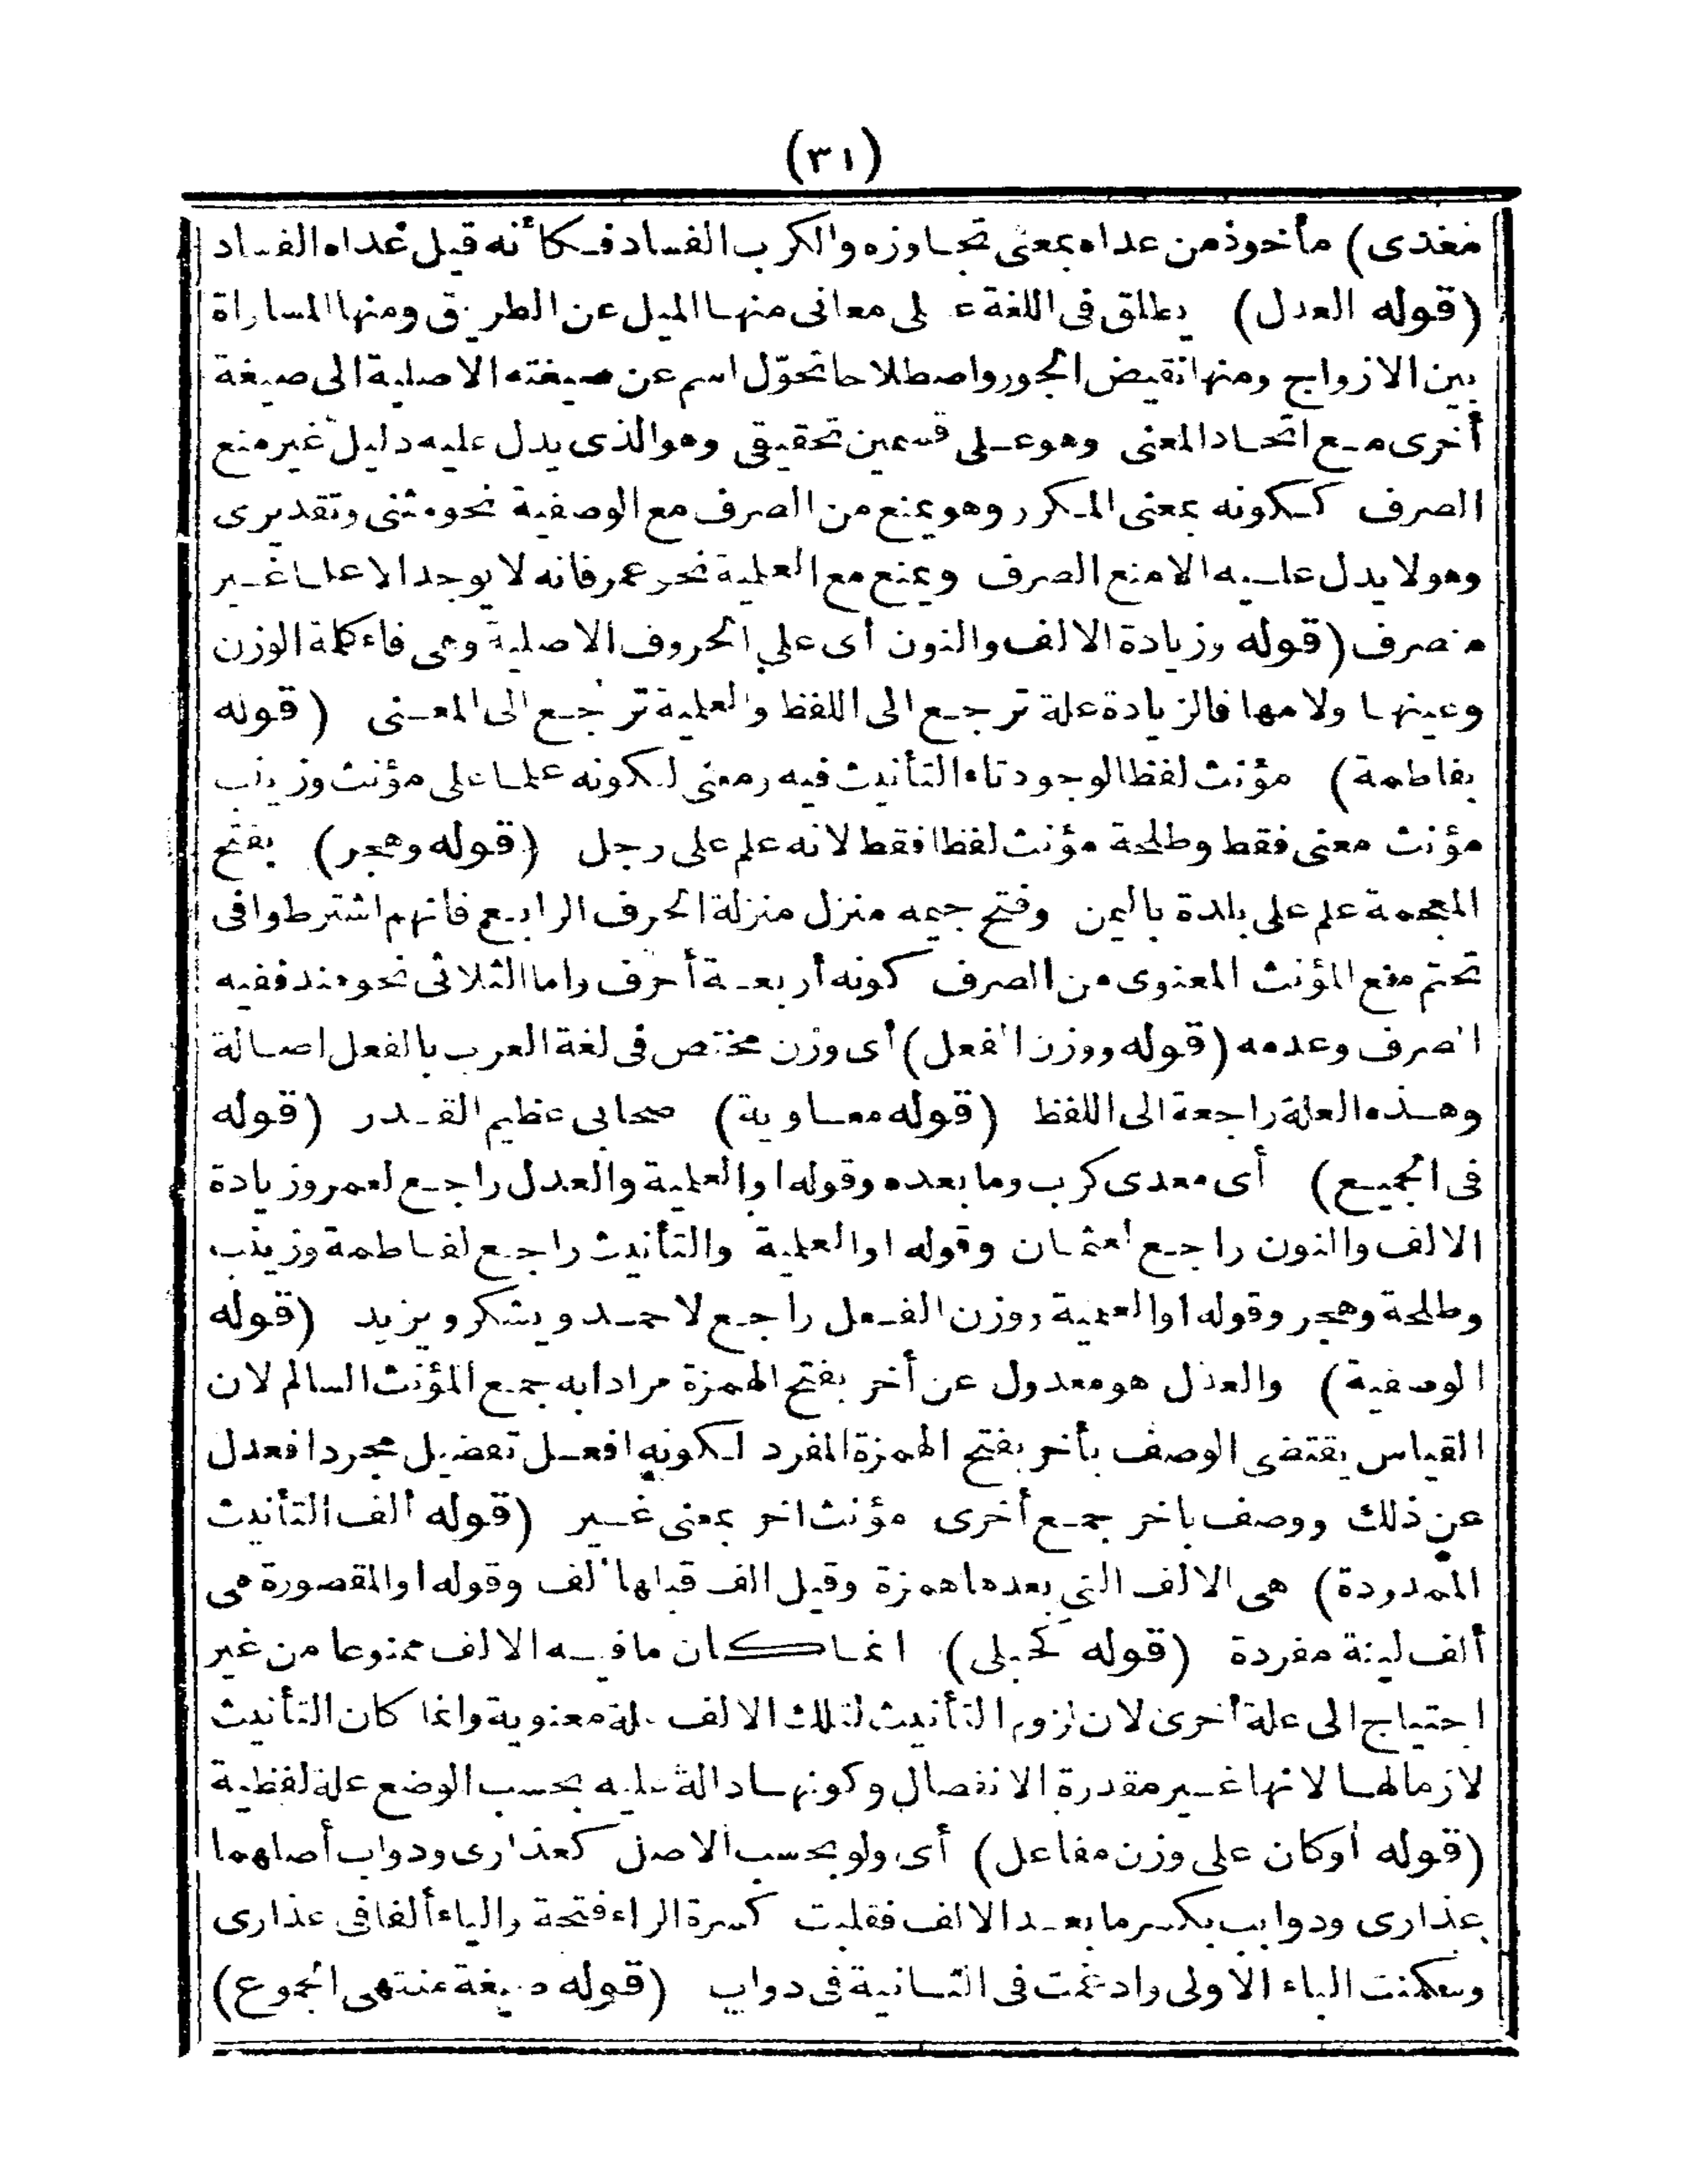 (٣١)
فعدى) مأخوذ من عداه بمعنى تجاوزه والكرب الفساد فكأنه قيل عداه الفساد
(قوله العدل) يطلق فى اللغة على معانى منها الميل عن الطريق ومنها المساواة
بين الازواج ومنها نقيض الجور واصطلاحا تحوّل اسم عن صيغته الاصلية الى صيغة
أخرى مع اتحاد المعنى وهو على قسمين تحقيقى وهو الذى يدل عليه دليل غير منع
الصرف ككونه بمعنى المكرر وهو يمنع من الصرف مع الوصفية نحو مثنى وتقديرى
وهو لا يدل عليه الا منع الصرف ويمنع مع العلمية نحو عمر فانه لا يوجد الا علما غير
منصرف (قوله وزيادة الالف والنون أى على الحروف الاصلية وهى فاء كلة الوزن
وعينها ولامها فالزيادة علة ترجع الى اللفظ والعلمية ترجع الى المعنى (قوله
بفاطمة) مؤنث لفظا لوجود تاء التأنيث فيه ومعنى لكونه علما على مؤنث وزينب
مؤنث معنى فقط وطلحة مؤنث لفظا فقط لانه علم على رجل (قوله وهجر) بفتح
المعجمة علم على بلدة باليمن وفتح جيمه منزل منزلة الحرف الرابع فانهم اشترطوا فى
تحتم منع المؤنث المعنوى من الصرف كونه أربعة أحرف واما الثلاثى نحو هند ففيه
الصرف وعدمه (قوله ووزن الفعل) أى وزن مختص فى لغة العرب بالفعل اصالة
وهذه العلة راجعة الى اللفظ (قوله معاوية) صحابى عظيم القدر (قوله
فى الجميع) أى معدى كرب وما بعده وقوله او العلمية والعدل راجع لعمر وزيادة
الالف والنون راجع لعثمان وقوله او العلمية والتأنيث راجع لفاطمة وزينب
وطلحة وهجر وقوله او العلمية ووزن الفعل راجع لاحمد ويشكر ويزيد (قوله
الوصفية) والعدل هو معدول عن أخر بفتح الهمزة مرادا به جمع المؤنث السالم لان
القياس يقتضى الوصف بأخر بفتح الهمزة المفرد لكونه افعل تفضيل مجردا فعدل
عن ذلك ووصف باخر جمع أخرى مؤنث اخر بمعنى غير (قوله ألف التأنيث
الممدودة) هى الالف التى بعدها همزة وقيل الف قبلها ألف وقوله او المقصورة هى
ألف لينة مفردة (قوله كحبلى) انما كان ما فيه الالف ممنوعا من غير
احتياج الى علة أخرى لان لزوم التأنيث لتلك الالف علة معنوية وانما كان التأنيث
لازما لها لانها غير مقدرة الانفصال وكونها دالة عليه بحسب الوضع علة لفظية
(قوله أو كان على وزن مفاعل) أى ولو بحسب الاصل كعذارى ودواب أصلهما
عذارى ودوابب بكسر ما بعد الالف فقلبت كسرة الراء فتحة والياء ألفا فى عذارى
وسكنت الباء الاولى وادغمت فى الثانية فى دواب (قوله صيغة منتهى الجموع)